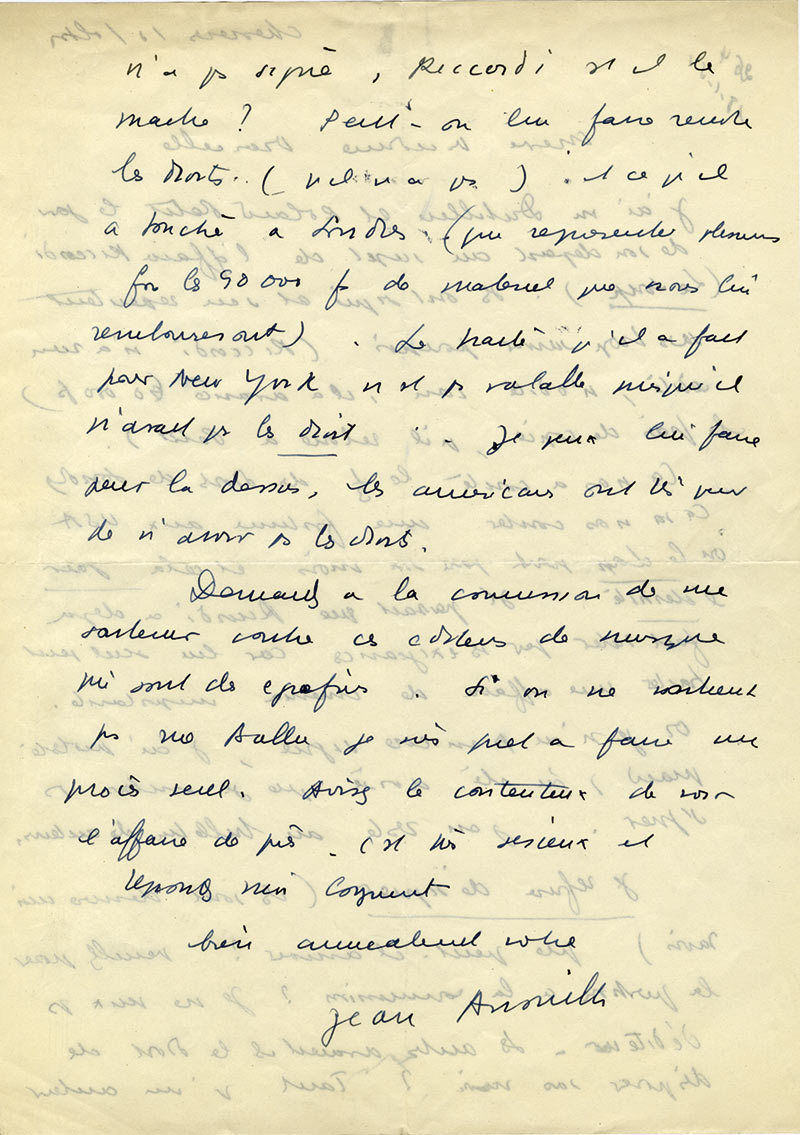 n'a ps signé, Riccordi est il le
maître ? Peut-on lui faire rendre
les droits. (s'il n'a ps ) et ce qu'il
a touché a Londres. (que représente
les 90 000 f de materiel que nous lui
rembourseront) . Le traité qu'il a fait
pour New York n'est ps valable puisqu'il
n'avait ps les droits . Je peux lui faire
peur la dessus, les americains ont tès peur
de n'avoir ps les droits.
Demandez a la commission de me
soutenir contre ces editeurs de musique
qui sont de . Si on ne soutient
ps ma Ballu je suis pret a faire un
procès seul. Avisez le contentieux de voir
l'affaire de près. C'est tès serieux et
repondez moi
bien amicalement votre
Jean Anouilh